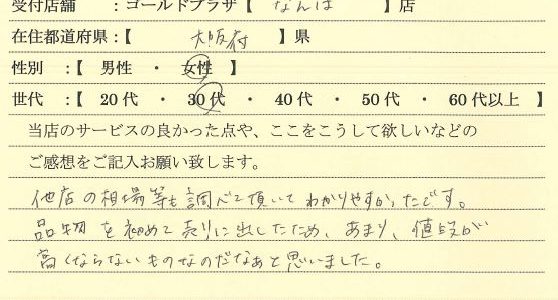 受付店舗 :ゴールドプラザ【 なんば 】店
在住都道府県:【 大阪府 】県
性別 :【 男性 ・ 女性 】
世代 :【 20代 ・ 30代 ・ 40代 ・ 50代 ・ 60代以上 】
当店のサービスの良かった点や、ここをこうして欲しいなどの
ご感想をご記入お願い致します。
他店の相場等も調べて頂いてわかりやすかったです。
品物を初めて売りに出したため、あまり、値段が
高くならないものなのだなぁと思いました。